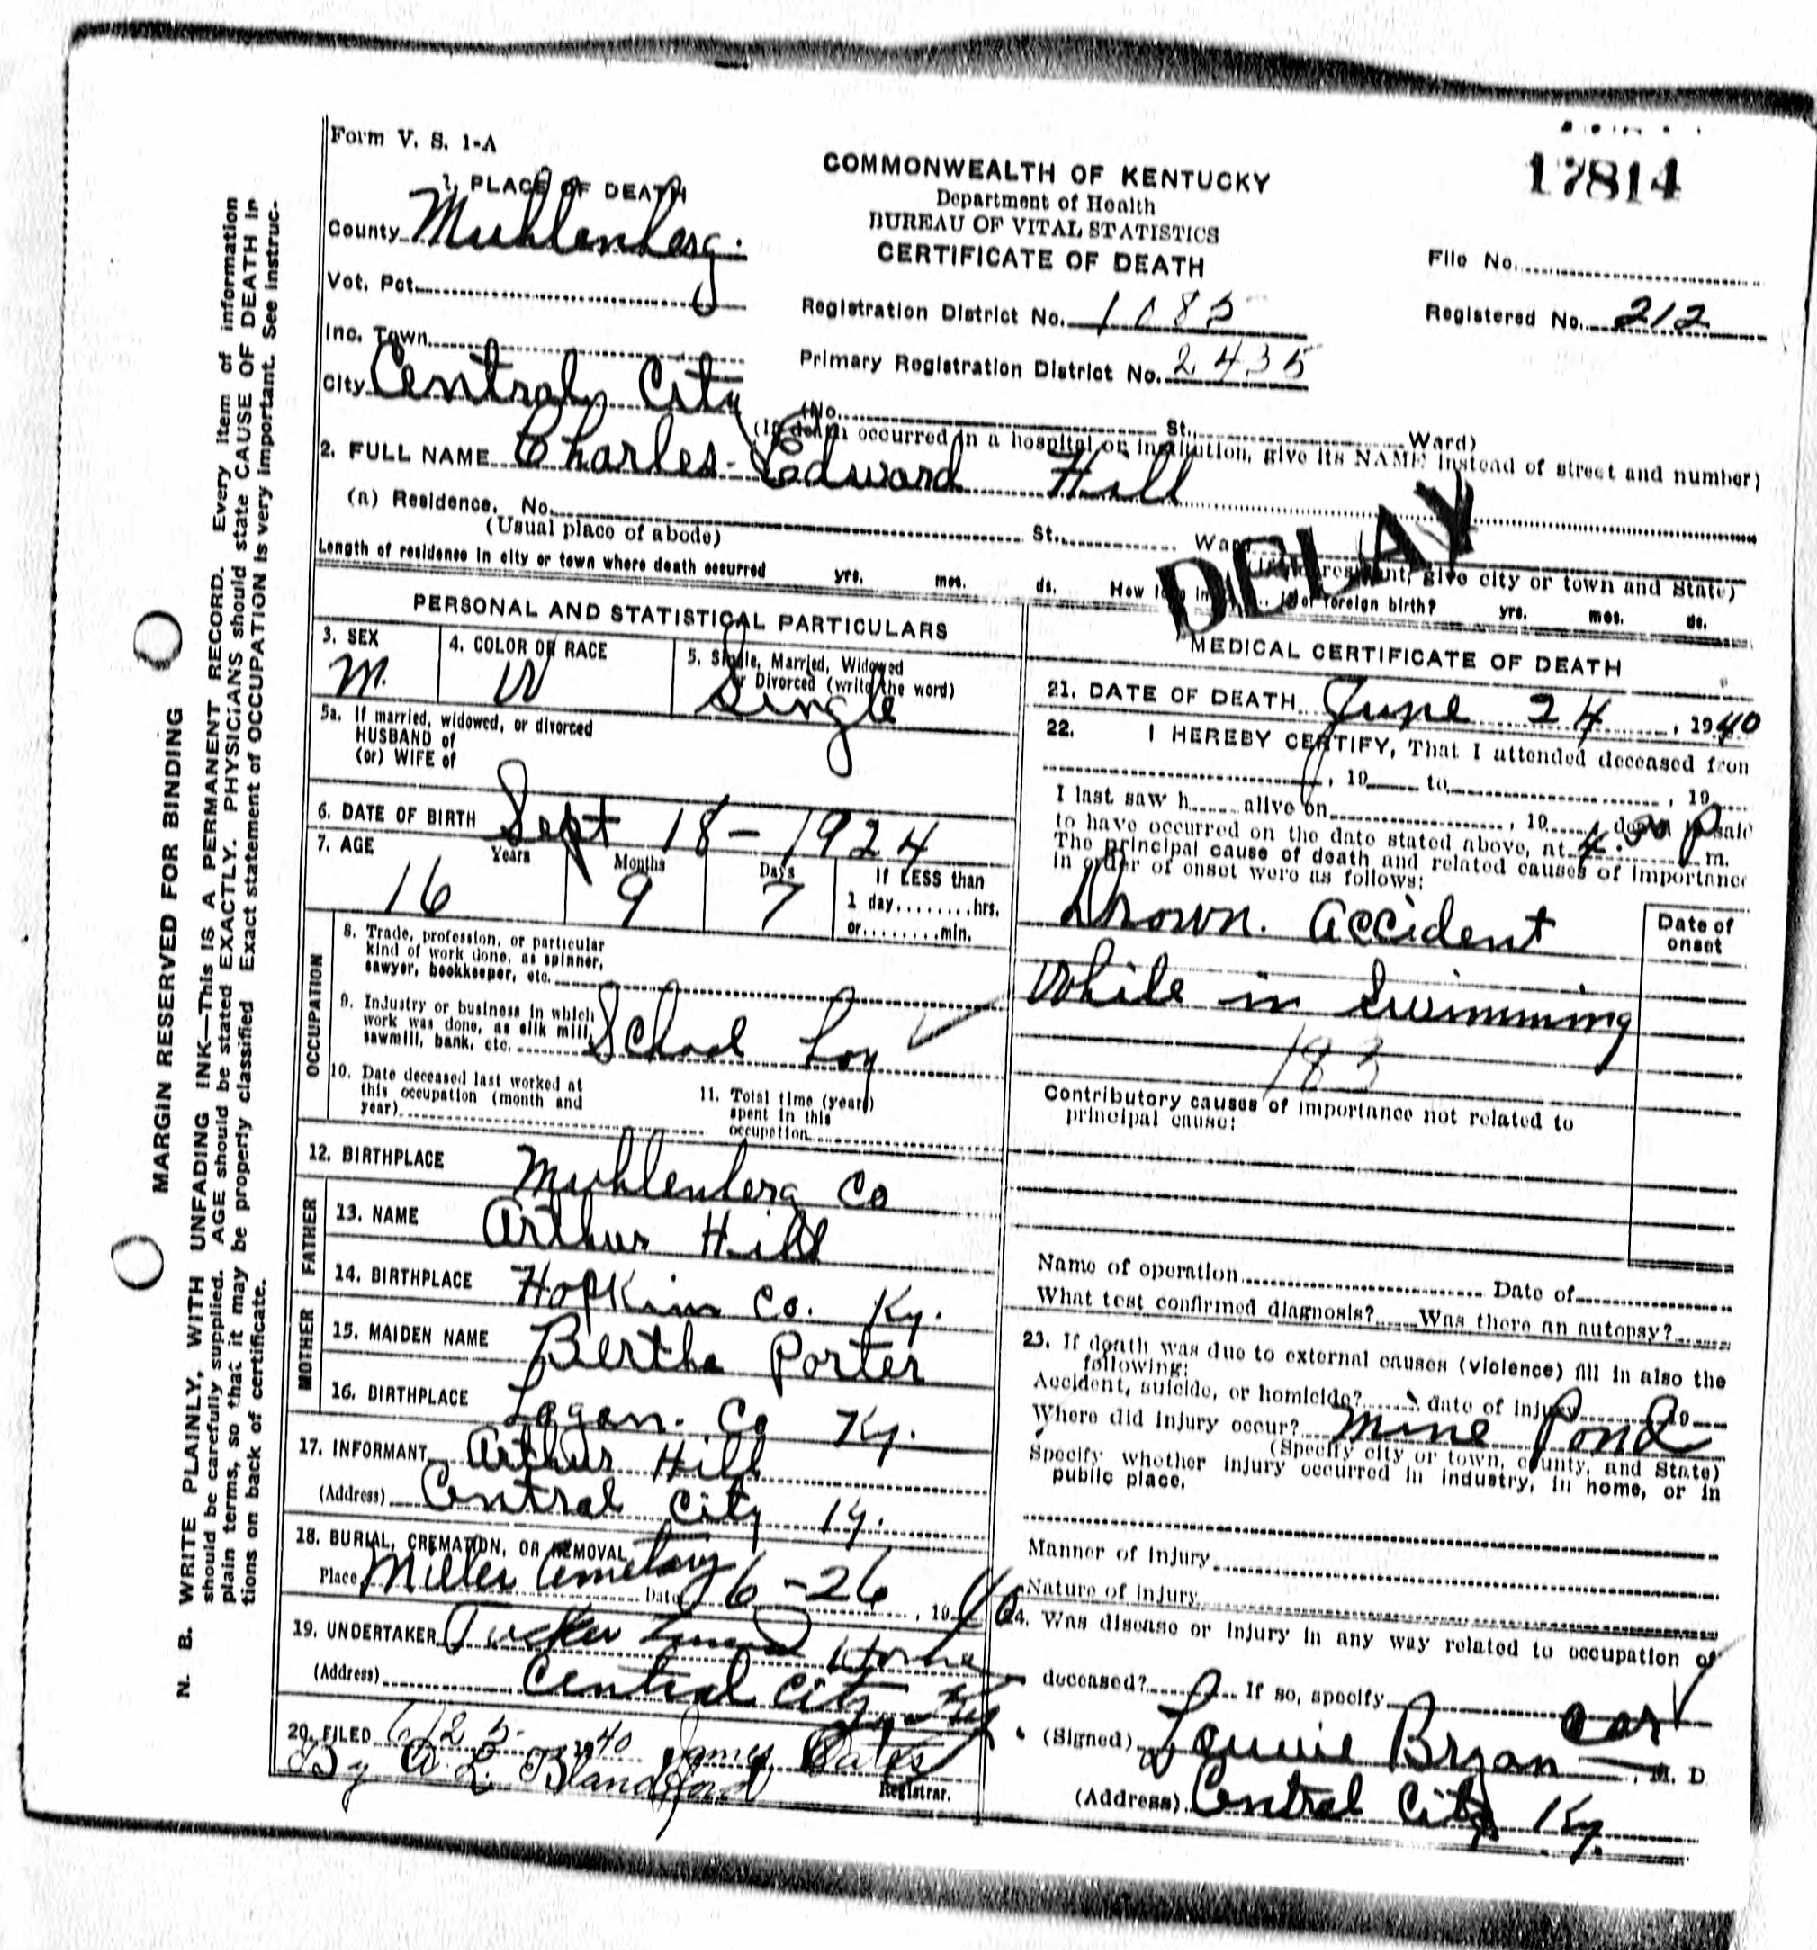 Form V. S. 1-A
17814
1. PLACE OF DEATH
COMMONWEALTH OF KENTUCKY
Department of Health
BUREAU OF VITAL STATISTICS
CERTIFICATE OF DEATH
County Muhlenberg.
File No.
Vot. Pct.
Registration District No. 1085
Registered No. 212
Inc. Town
Primary Registration District No. 2435
City Central City
(No. St., Ward)
(If death occurred in a hospital or institution, give its NAME instead of street and number)
2. FULL NAME Charles Edward Hill
(a) Residence. No. St., Ward
(Usual place of abode)
give city or town and State)
DELAY
Length of residence in city or town where death occurred yrs. mos. ds. How long in of foreign birth? yrs. mos. ds.
PERSONAL AND STATISTICAL PARTICULARS
3. SEX
M.
4. COLOR OR RACE
W
5. Single, Married, Widowed
or Divorced (write the word)
Single
5a. If married, widowed, or divorced
HUSBAND of
(or) WIFE of
6. DATE OF BIRTH Sept 18-1924
7. AGE Years Months Days If LESS than
16 9 7 1 day, ........hrs.
or........min.
OCCUPATION
8. Trade, profession, or particular
kind of work done, as spinner,
sawyer, bookkeeper, etc.
9. Industry or business in which
work was done, as silk mill,
sawmill, bank, etc. School boy
10. Date deceased last worked at
this occupation (month and
year)
11. Total time (years)
spent in this
occupation
12. BIRTHPLACE Muhlenberg Co
FATHER
13. NAME Arthur Hill
14. BIRTHPLACE Hopkins Co. Ky.
MOTHER
15. MAIDEN NAME Bertha Porter
16. BIRTHPLACE Logan. Co Ky.
17. INFORMANT Arthur Hill
(Address) Central City Ky.
18. BURIAL, CREMATION, OR REMOVAL
Place Miller Cemetary Date 6-26, 1940
19. UNDERTAKER Tucker Funeral Home
(Address) Central City Ky
20. FILED 6/25- 1940 James Oates
Registrar.
By A. L. Blandford
MEDICAL CERTIFICATE OF DEATH
21. DATE OF DEATH June 24, 1940
22. I HEREBY CERTIFY, That I attended deceased from
, 19 to , 19
I last saw h alive on , 19 , death is said
to have occurred on the date stated above, at 4:30 P m.
The principal cause of death and related causes of importance
in order of onset were as follows:
Date of
onset
Drown. Accident
While in Swimming
183
Contributory causes of importance not related to
principal cause:
Name of operation Date of
What test confirmed diagnosis? Was there an autopsy?
23. If death was due to external causes (violence) fill in also the
following:
Accident, suicide, or homicide? date of injury 19
Where did injury occur? Mine Pond
(Specify city or town, county, and State)
Specify whether injury occurred in industry, in home, or in
public place.
Manner of Injury
Nature of Injury
24. Was disease or injury in any way related to occupation of
deceased? If so, specify
(Signed) Bryan Cor , M. D
(Address) Central City Ky.
MARGIN RESERVED FOR BINDING
N. B. WRITE PLAINLY, WITH UNFADING INK—THIS IS A PERMANENT RECORD. Every item of information
should be carefully supplied. AGE should be stated EXACTLY. PHYSICIANS should state CAUSE OF DEATH in
plain terms, so that it may be properly classified. Exact statement of OCCUPATION is very important. See instruc-
tions on back of certificate.